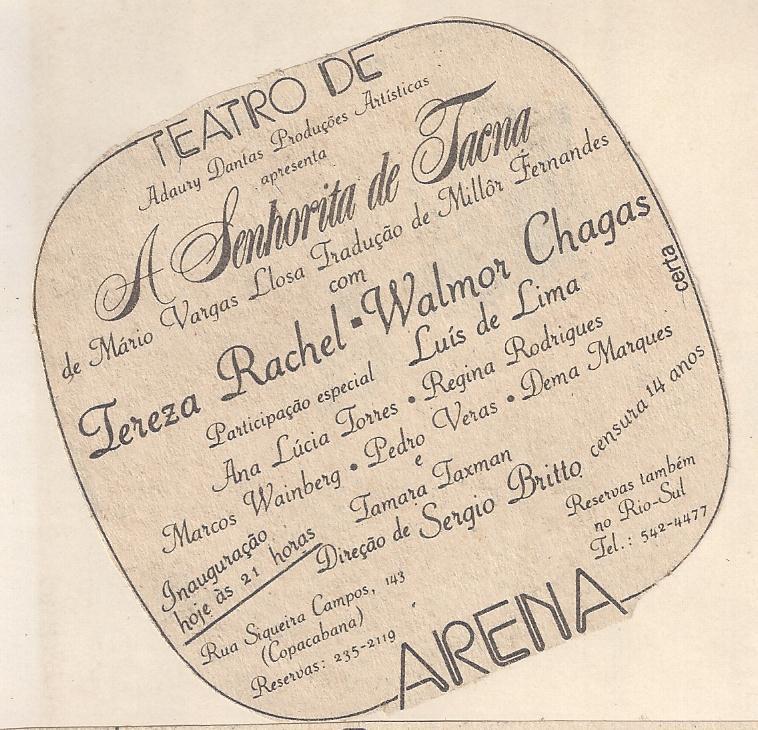 TEATRO DE
Adaury Dantas Produções Artísticas
apresenta
A Senhorita de Tacna
de Mário Vargas Llosa Tradução de Millôr Fernandes
com
Tereza Rachel ▪ Walmor Chagas
certa
Participação especial Luís de Lima
Ana Lúcia Torres • Regina Rodrigues
Marcos Wainberg • Pedro Veras • Dema Marques
e
Tamara Taxman
Direção de Sergio Britto censura 14 anos
Inauguração
hoje às 21 horas
Rua Siqueira Campos, 143
(Copacabana)
Reservas: 235-2119
Reservas também
no Rio-Sul
Tel.: 542-4477
ARENA